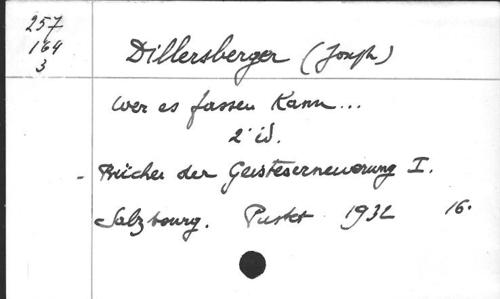 257
164
3
Dillersberger (Joseph)
Wer es fassen Kann...
2° id.
- Bücher der Geisteserneuerung I.
Salzbourg. Pustet 1932 16.